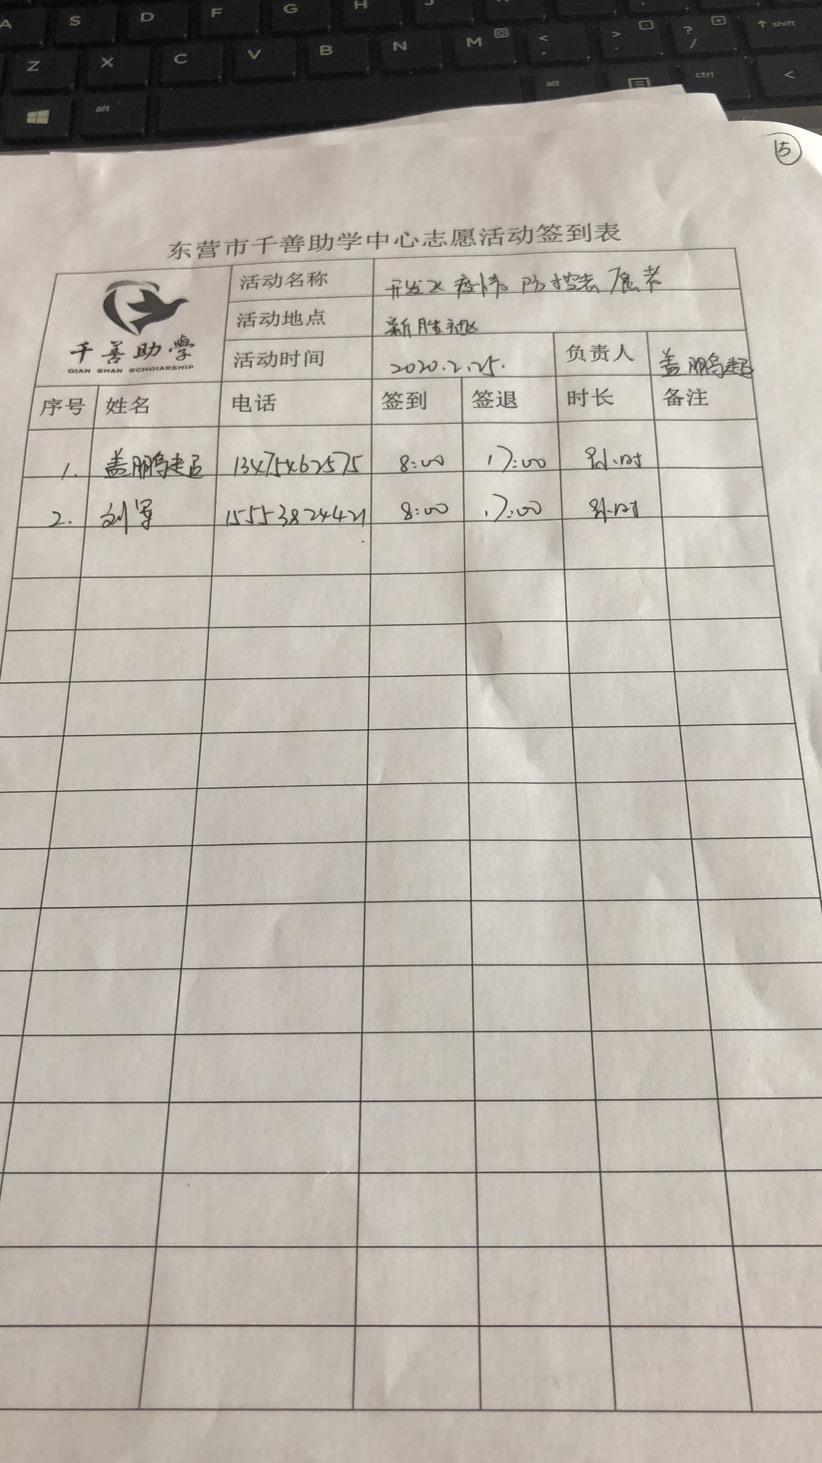 A S D F G H J
Z X C V B N M < > ? / shift
alt alt ctrl <
15
东营市千善助学中心志愿活动签到表
千善助学
QIAN SHAN SCHOLARSHIP
活动名称 开发区疫情防控志愿者
活动地点 新胜社区
活动时间 2020.2.25. 负责人 盖鹏超
序号 姓名 电话 签到 签退 时长 备注
1. 盖鹏超 13475462575 8:00 17:00 9小时
2. 刘军 15553824421 8:00 17:00 9小时